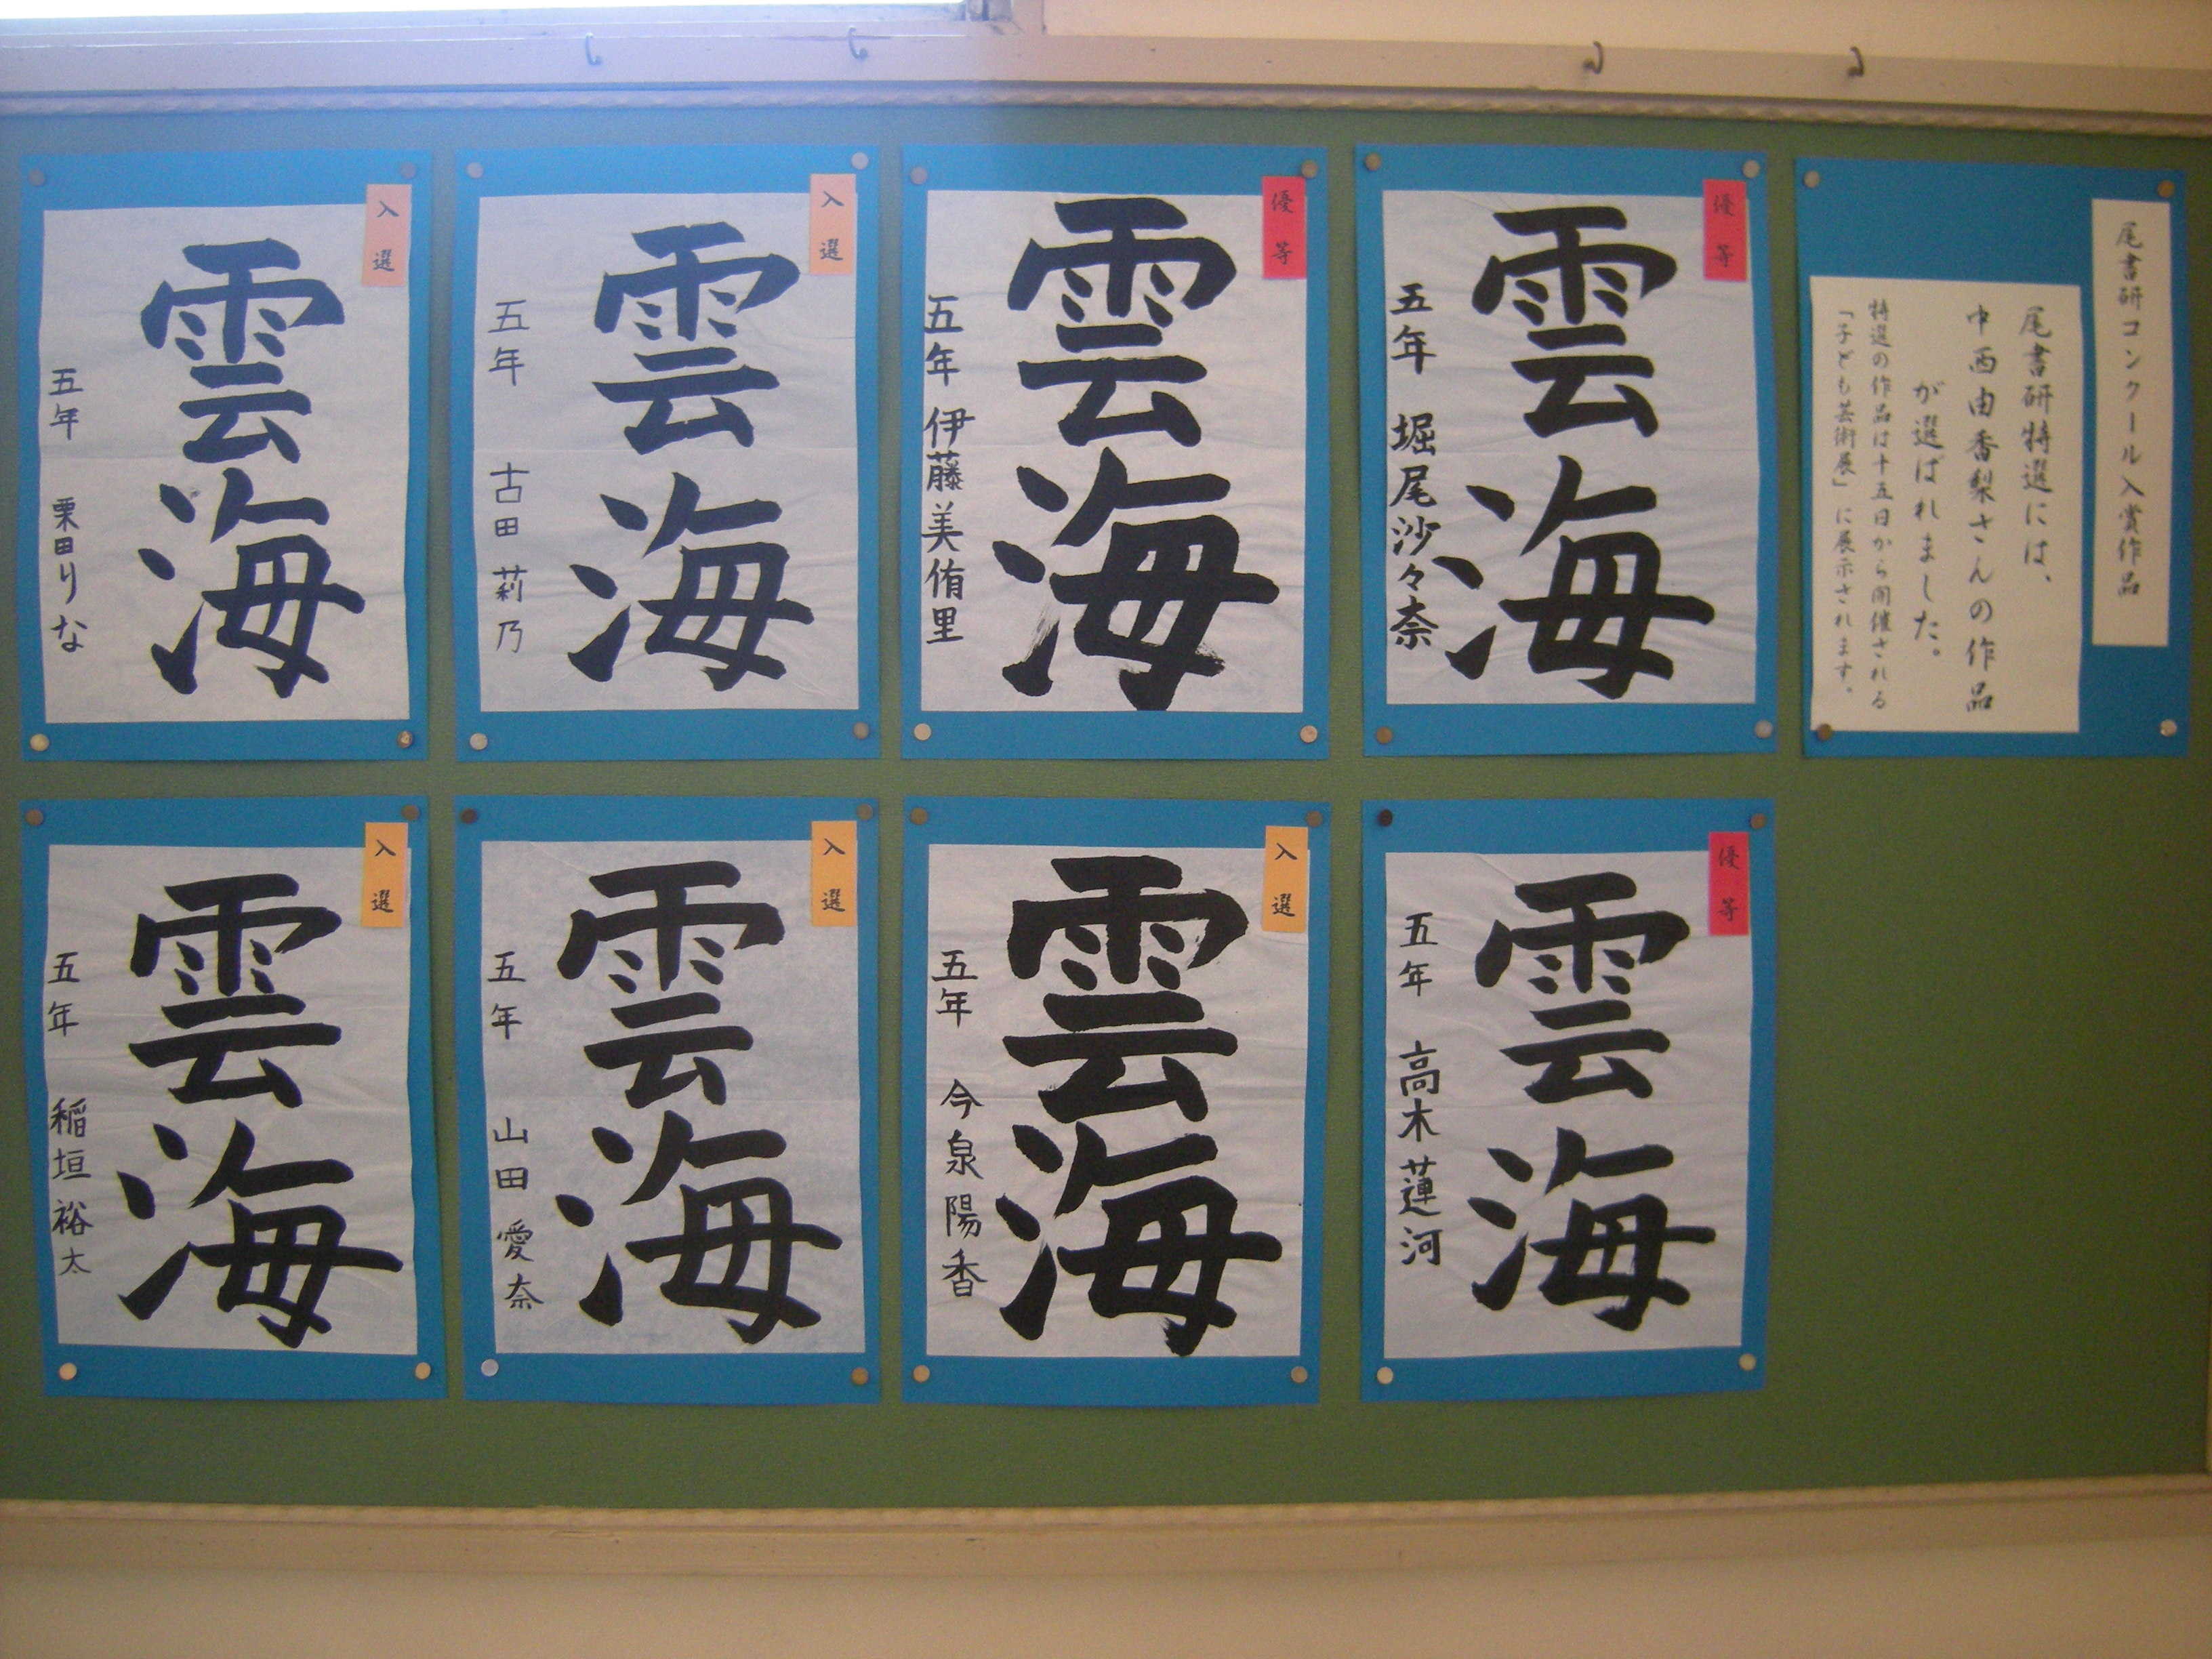 尾書研コンクール入賞作品
尾書研特選には、
中西由香梨さんの作品
が選ばれました。
特選の作品は十五日から開催される
「子ども芸術展」に展示されます。
優等
雲海
五年 堀尾沙々奈
優等
雲海
五年 伊藤美侑里
入選
雲海
五年 古田莉乃
入選
雲海
五年 栗田りな
優等
雲海
五年 高木蓮河
入選
雲海
五年 今泉陽香
入選
雲海
五年 山田愛奈
入選
雲海
五年 稲垣裕太